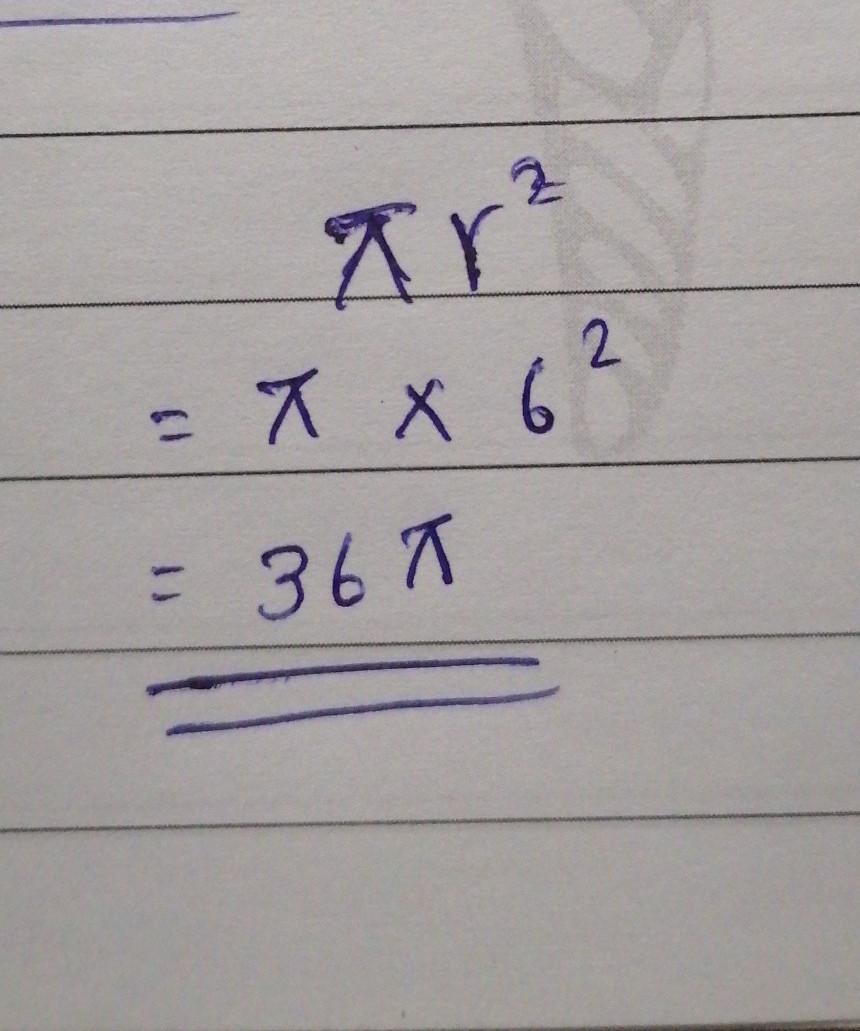 πr²
= π × 6²
= 36π